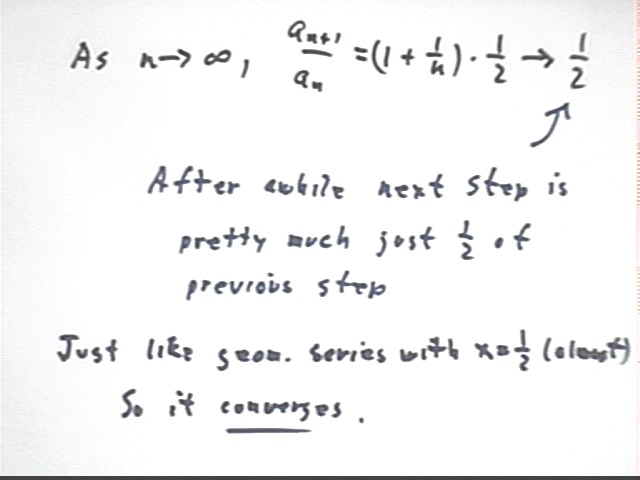 As n→∞, a_{n+1}/a_n = (1 + 1/n) · 1/2 → 1/2
After awhile next step is
pretty much just 1/2 of
previous step
Just like geom. series with x = 1/2 (almost)
So it converges.